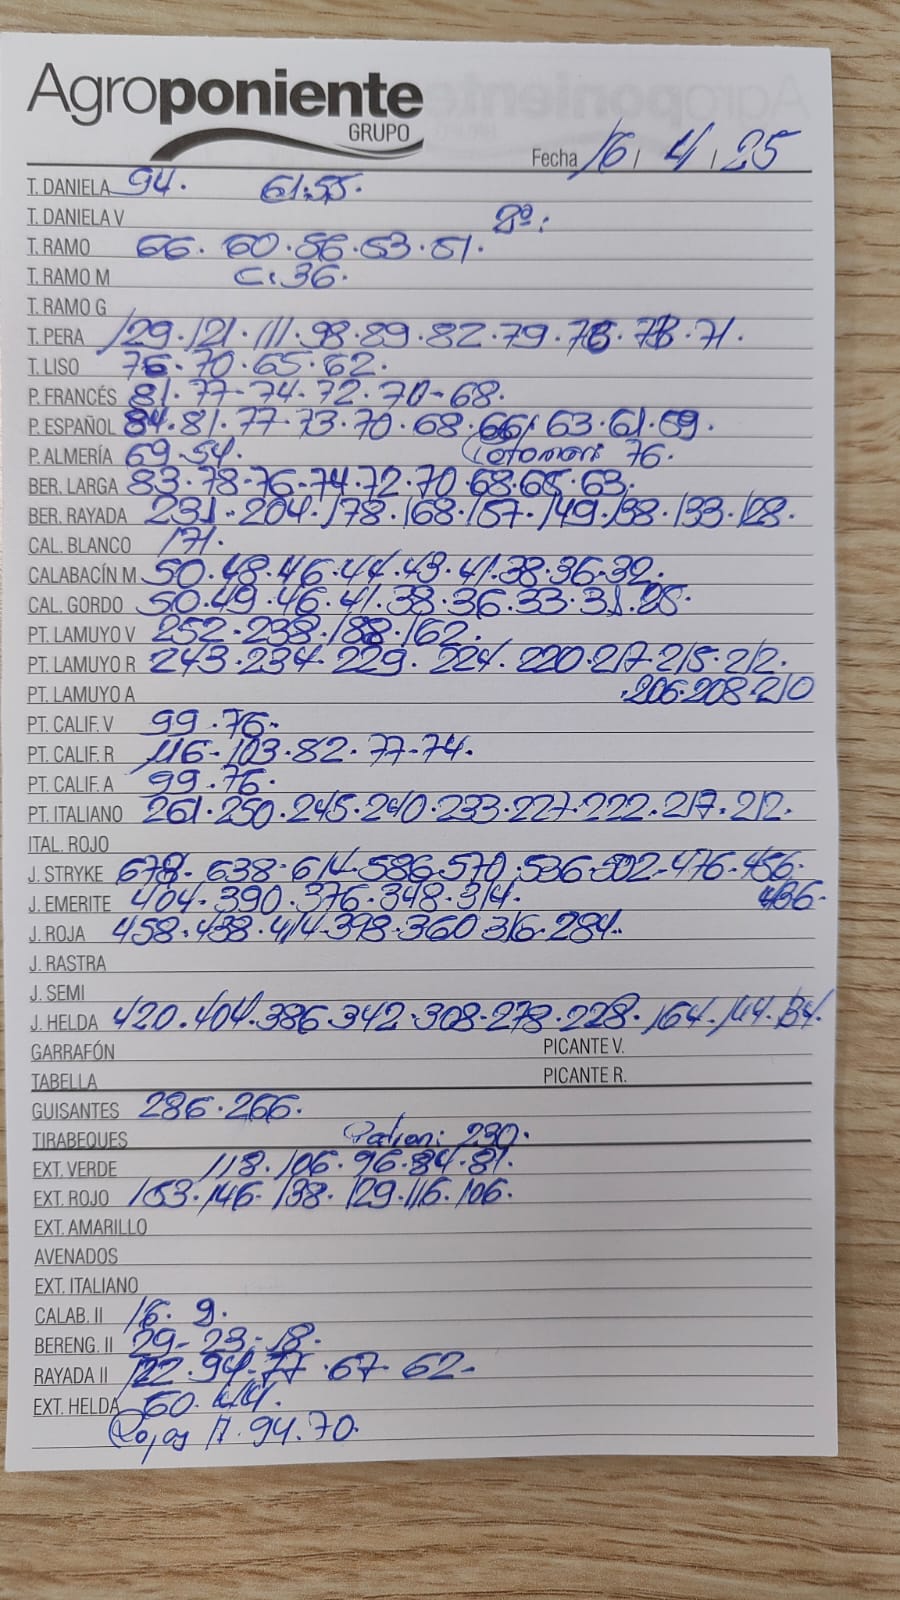 Agroponiente
GRUPO
Fecha 16 / 4 / 25
T. DANIELA 94. 61.55.
T. DANIELA V 2ª:
T. RAMO 66. 60.56.53.51.
T. RAMO M C: 36.
T. RAMO G
T. PERA 129.121.111.98.89.82.79.76.73.71.
T. LISO 76.70.65.62.
P. FRANCÉS 81.77-74.72.70-68.
P. ESPAÑOL 84.81.77.73.70.68.66.63.61.59.
P. ALMERÍA 69-54. 76.
BER. LARGA 83.78-76-74.72.70.68.65.63.
BER. RAYADA 231-204.178.168.157.149.138.133.128.
CAL. BLANCO 171.
CALABACÍN M 50.48.46.44.43.41.38.36.32.
CAL. GORDO 50.49.46.41.38.36.33.31.28.
PT. LAMUYO V 252.238.188.162.
PT. LAMUYO R 243.234.229.224.220.217.215.212.
PT. LAMUYO A .206.208.210
PT. CALIF. V 99.76.
PT. CALIF. R 116-103.82.77-74.
PT. CALIF. A 99.76.
PT. ITALIANO 261.250.245.240.233.227.222.217.212.
ITAL. ROJO
J. STRYKE 678.638.614.586.570.536.502.476.456.
J. EMERITE 404.390.376.348.314. 436.
J. ROJA 458.438.414.398.360 316.284.
J. RASTRA
J. SEMI
J. HELDA 420.404.386.342.308.278.228.164.144.134.
GARRAFÓN PICANTE V.
TABELLA PICANTE R.
GUISANTES 286.266.
TIRABEQUES 230.
EXT. VERDE 118.106.96.84.81.
EXT. ROJO 153.146.138.129.116.106.
EXT. AMARILLO
AVENADOS
EXT. ITALIANO
CALAB. II 16. 9.
BERENG. II 29-23.18.
RAYADA II 122.94-77.67.62-
EXT. HELDA 60.44.
Rojas 94.70.